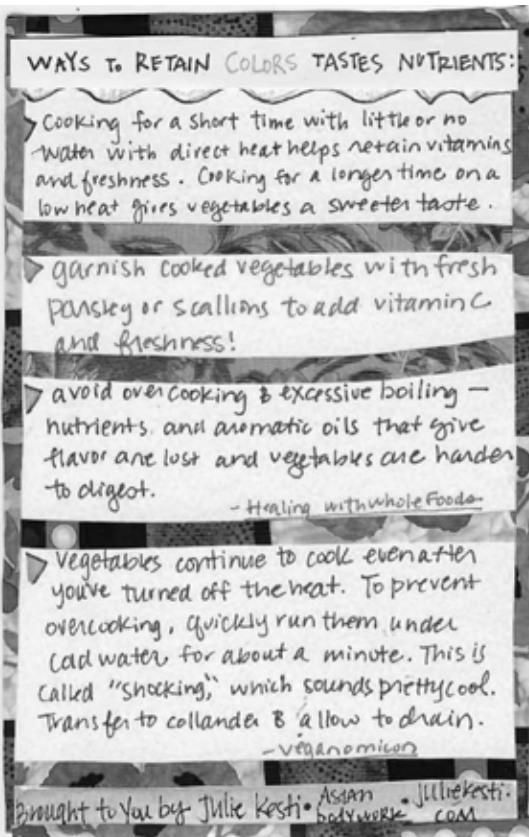 WAYS to RETAIN COLORS TASTES NUTRIENTS:
Cooking for a short time with little or no
water with direct heat helps retain vitamins
and freshness. Cooking for a longer time on a
low heat gives vegetables a sweeter taste.
garnish cooked vegetables with fresh
parsley or scallions to add vitamin C
and freshness!
avoid overcooking & excessive boiling —
nutrients and aromatic oils that give
flavor are lost and vegetables are harder
to digest.
- Healing with whole Foods
Vegetables continue to cook even after
you've turned off the heat. To prevent
overcooking, quickly run them under
cold water for about a minute. This is
called "shocking," which sounds pretty cool.
Transfer to collander & allow to drain.
- veganomicon
Brought to you by Julie Kesti • ASIAN BODYWORK • juliekesti.com